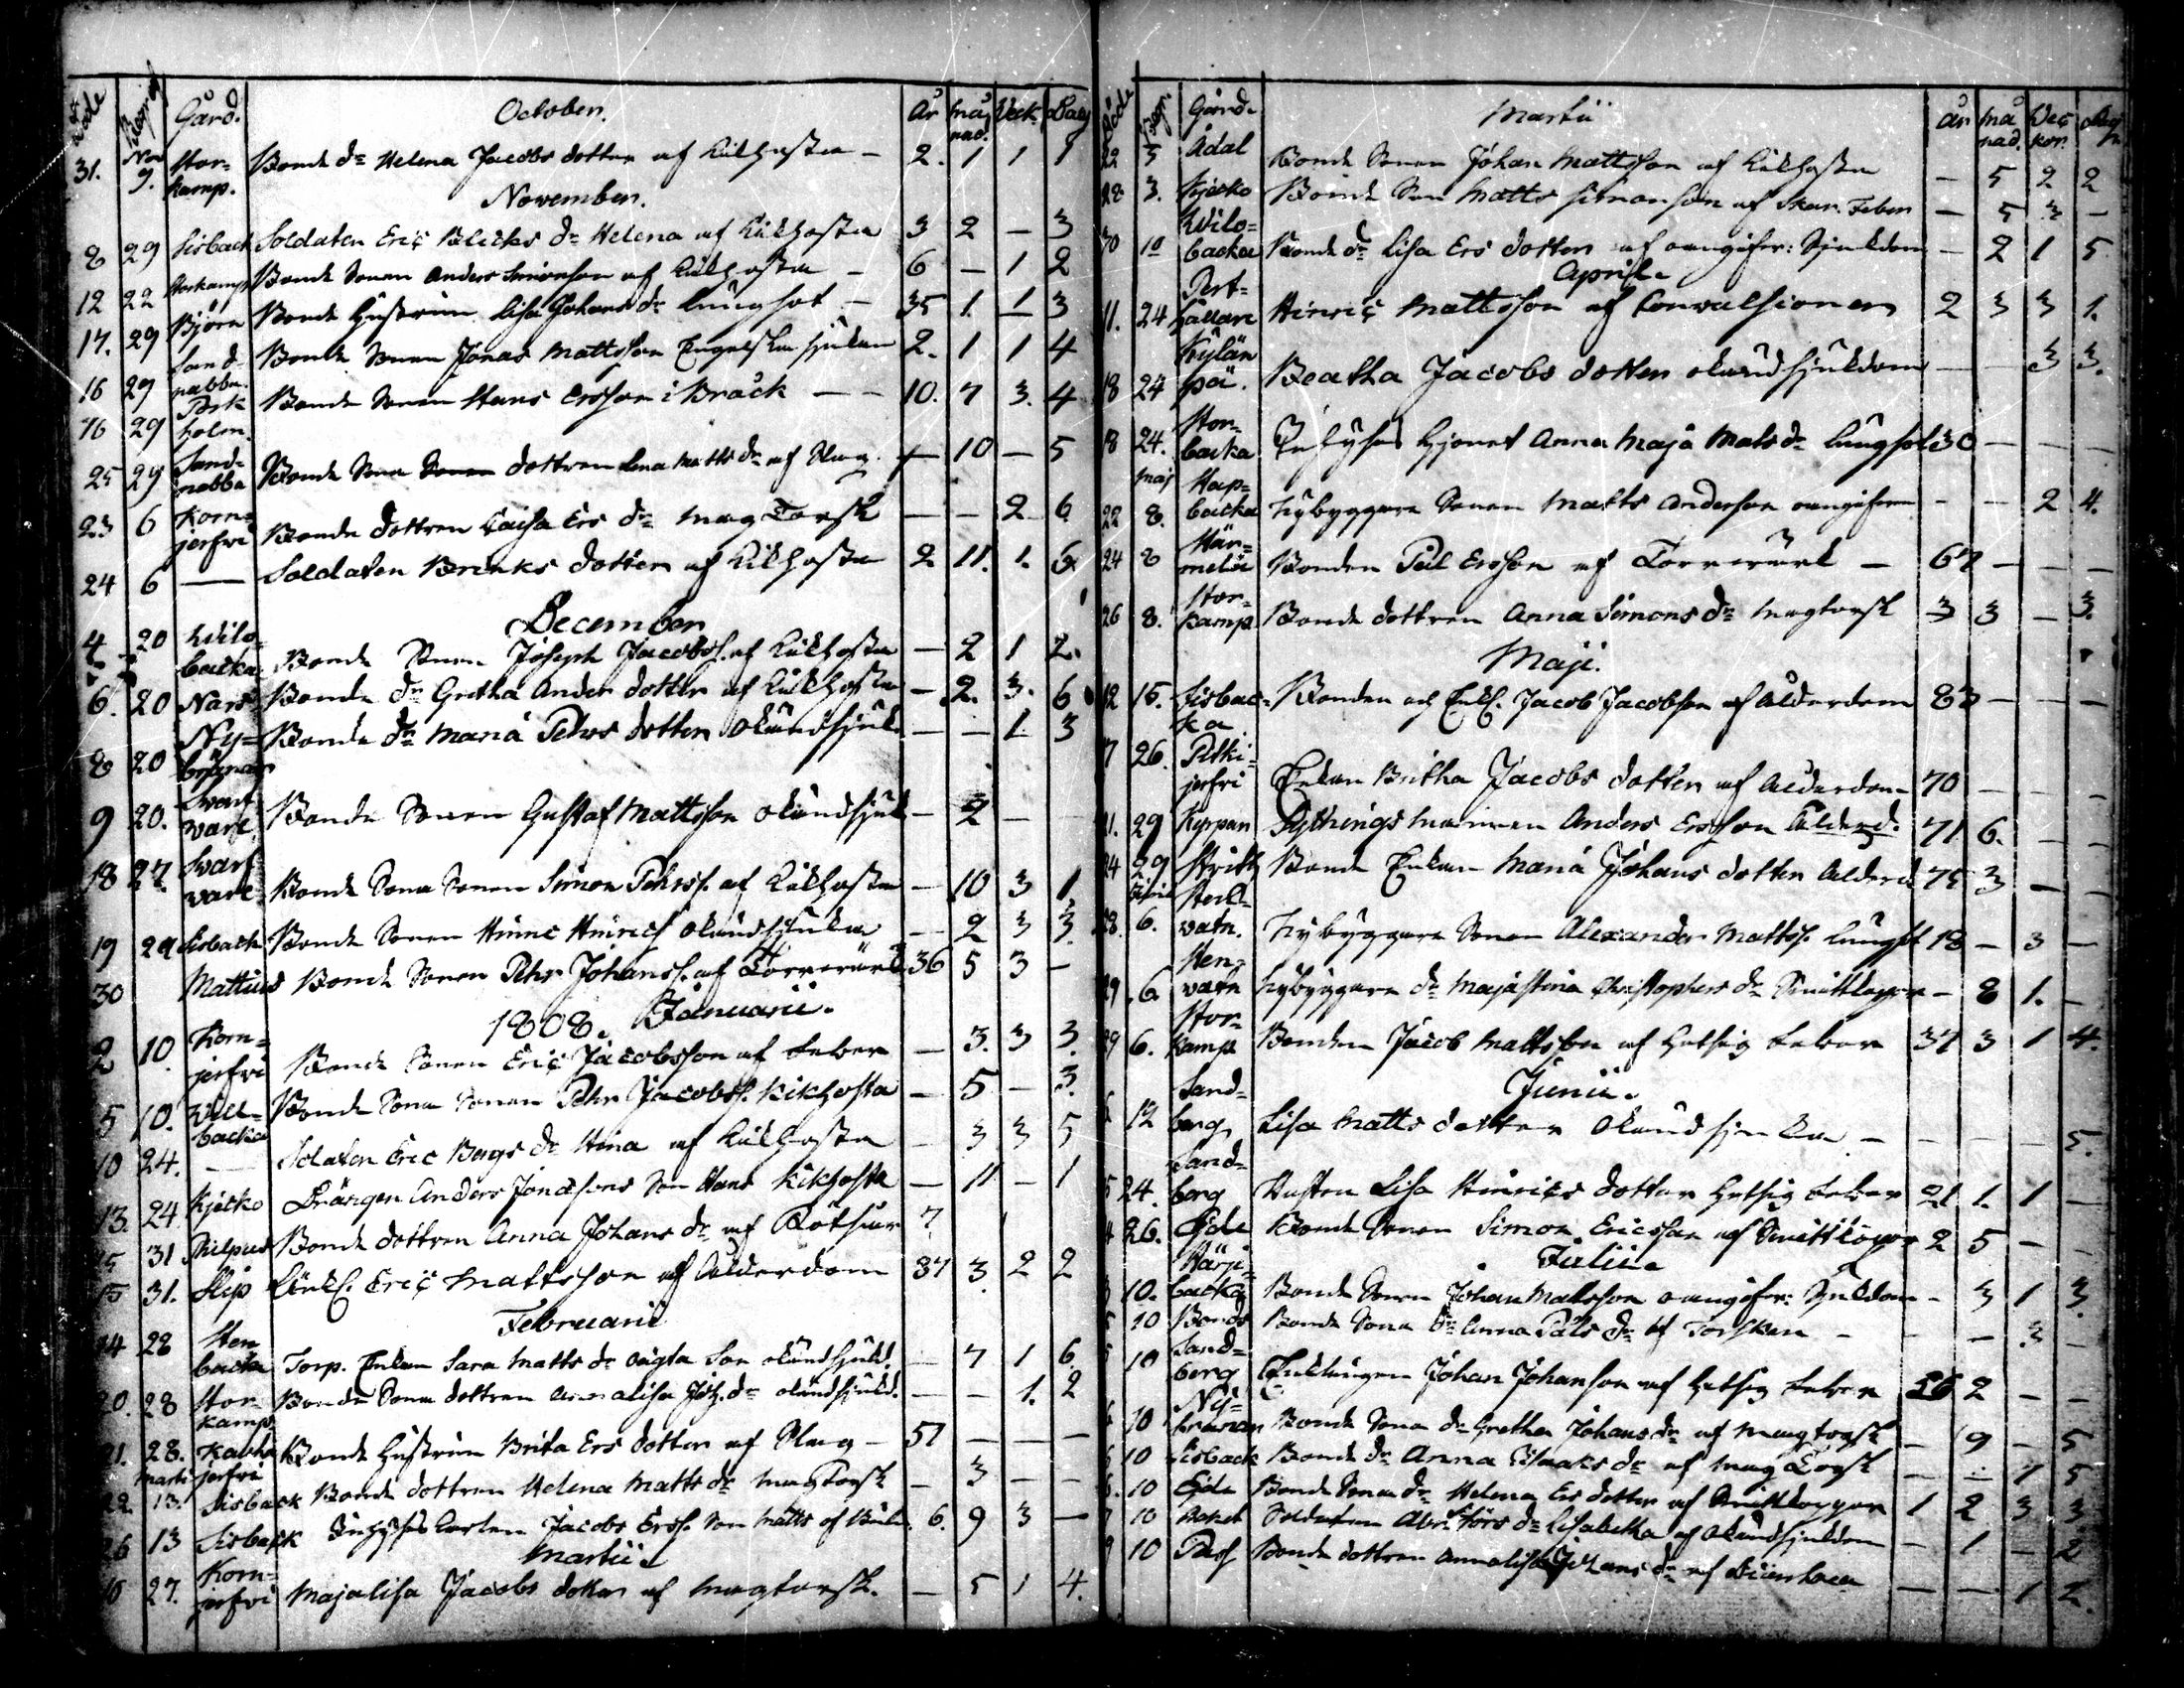 Döde Begrafd Gård. October. År månad. Veck. Dag
31. Nov 9. Storkamp. Bonde dr Helena Jacobs dotter af Kikhosta – 2. 1 1 1
November.
8 29 Lisback Soldaten Eric Blicks dr Helena af Kikhosta 3 2 – 3
12 22 Storkamp Bonde Sonen Anders Simonson af Kikhosta – 6 – 1 2
14. 29 Björn Bonde Hustrun Lisa Johans dr lungsot – 35 1. 1 3
16 29 Sandnabba. Bonde Sonen Jonas Mattsson Engelska sjukan 2. 1 1 4
16 29 Perkholm. Bonde Sonen Hans Ersson i Bråck – – 10. 7 3. 4
25 29 Sandnabba Bonde Sona dottren Lena Matts dr af Slag. – 10 – 5
23 6 Kornjerfvi Bonde dottren Caisa Ers dr mag Torsk – – 2 6
24 6 — Soldaten Brinks dotter af Kikhosta 2 11. 1. 6
December
4 20 backa Bonde Sonen Joseph Jacobss. af Kikhosta – 2 1 2.
6. 20 Nars Bonde dr Gretha Anders dotter af Kikhosta – 2. 3. 6
8 20 Nybrånar Bonde dr Maria Pehrs dotter okändsjuk. – – 1. 3
9 20. Svartvare Bonde Sonen Gustaf Mattsson okändsjuk – 2 – –
18 27. Svartvare Bonde Sona Sonen Simon Pehrss. af Kikhosta – 10 3 1
19 29 Lisback Bonde Sonen Hinric Hinricss okändsjuka – 2 3 3.
30 Mattius Bonde Sonen Pehr Johanss. af Torrvärk 36 5 3 –
1808. Januarii.
2 10. Kornjerfvi Bonde Sonen Eric Jacobsson af feber – 3. 3 3.
5 10. Villbacka Bonde Sona Sonen Pehr Jacobss. Kikhosta – 5 – 3.
10 24. — Soldaten Eric Bergs dr Stina af Kikhosta – 3 3 5
13. 24. Kjesko Drängen Anders Jonasons Son Hans Kikhosta – 11 – 1
15 31 Philpus Bonde dottren Anna Johans dr af Rötsur 7
15 31. Slip Enkl. Eric Mattsson af Ålderdom 87 3 2 2
Februarii
14 28 Stenbacka Torp. Enkan Sara Matts dr oägta Son okändsjukd. – 7 1 6
20. 28 Storkamp Bonde Sona dottren Annalisa Joh. dr okändsjukd. – – 1. 2
21. 28. Bonde Hustrun Brita Ers dotter af Slag – 51 – – –
22 Martii 13. Lisback Bonde dottren Helena Matts dr magTorsk – 3 – –
26 13 Lisback Inhyses Karlen Jacobs Erss. Son Matts af 6. 9 3 –
Martii
18 27. Kornjerfvi Majalisa Jacobs dotter af magtorsk. – 5 1 4.
Döde Begr. Gård. Martii År månad. Veckor. Dag
22 3 Ådal Bonde Sonen Johan Mattsson af Kikhosta – 5 2 2
28 3. Kjesko Bonde Son Matts Simonson af Skar. Feber – 5 3 –
30 10 backa Bonde dr Lisa Ers dotter af oangifv: Sjukdom – 2 1 5
April.
11. 24 Perthållare Hinric Mattsson af Convulsioner 2 3 3 1.
18 24 Kylänpä. Beatha Jacobs dotter okändsjukdom – – 3 3.
18 24. Storbacka Inhyses Hjonet Anna Maja Mats dr lungsot 30 – – –
22 maj 8. Kapbacka Nybyggare Sonen Matts Anderson oangifven – – 2 4.
24 8 Härmelä Bonden Pål Ersson af Torrvärk – 67 – – –
26 8. Storkamp Bonde dottren Anna Simons dr magtorsk 3 3 – 3.
Maji.
12 15. Lisbacka Bonden och Enkl. Jacob Jacobson af Ålderdom 83 – – –
17 26. Petkijerfvi Enkan Britha Jacobs dotter af Ålderdom 70 – – –
21. 29 Kyrpan Sythings mannen Anders Ersson Ålderd. 71 6. – –
24 29 Bonde Enkan Maria Johans dotter Ålderd. 75 3 – –
28. Junii 6. vatn. Nybyggare Sonen Alexander Mattss. lungsot 18 – 3 –
29 6. Stenvatn Nybyggare dr Majastina Christophers dr Smittkoppor – 8 1. –
29 6. Storkamp Bonden Jacob Mattsson af Hetsig feber 37 3 1 4.
Junii.
12 Sandberg Lisa Matts dotter Okändsjuka – – – – 5.
5 24. Sandberg Hustru Lisa Hinrics dotter Hetsig feber 21 1. 1 –
4 26. Gjde Bonde Sonen Simon Ericsson af Smittkoppor 2 5 – –
Julii.
3 10. Härjbacka Bonde Sonen Johan Mattsson oangifv: Sjukdom – 3 1 3.
5 10 Bonds Bonde Sona dr Anna Påls dr af Torsken – – – 3 –
5 10 Sandberg Enklingen Johan Johanson af Hetsig feber 56 2 – –
6 10 Nybrånan Bonde Sona dr Gretha Johans dr af magtorsk – 9 – 5
6 10 Lisback Bonde dr Anna Isaaks dr af mag Torsk – – 1 5
6. 10 Gjde Bonde Sona dr Helena Ers dotter af Smittkoppor 1 2 3 3
7 10 Soldaten Abr. Törs dr Lisabetha af okändsjukdom – 1 – 2
9 10 Pass Bonde dottren Annalisa Johans dr af – – 1 2.